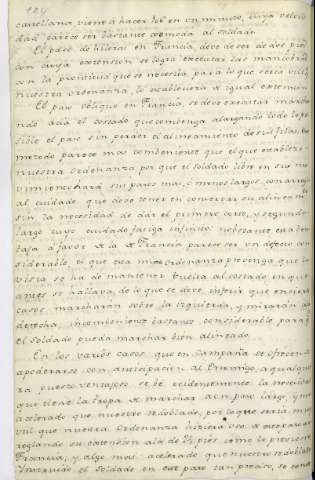 124
castellana viene á hacer 106 en un minuto, cuya veloci
dad parece ser bastante acomoda al soldado.
El paso de hileras en Francia, deve de ser de dos pies
con cuya extension se logra executar las maniobras
con la prontitud que se necesita, para lo que seria util,
nuestra ordenanza, lo estableciera á igual extension
El paso obliquo en Francia, se deve executar marchan
do acia el costado que convenga alargando todo lo po
sible el paso sin perder el alineamiento de sus filas,
metodo parece mas combeniente que el que establece
nuestra Ordenanza por que el soldado libre en sus mo
vimientos hará sus pasos mas, ó menos largos, con arreglo
al cuidado que deve tener en conservar su alineamto
sin la necesidad de dar el primero corto, y segundo
largo cuyo cuidado fatiga infinito: no obstante esta ven
taja á favor de la de Francia parece ser un defecto con
siderable, el que esa misma ordenanza prevenga que la
vista se ha de mantener buelta al costado, en que
antes se hallava, de lo que se deve inferir que en ciertos
casos, marcharán sobre la izquierda, y mirarán á la
derecha, incombeniente bastante considerable para q
el soldado pueda marchar bien alineado.
En los varios casos que en campaña se ofrecen de
apoderarse con anticipacion al Enemigo, de qualqui
ra puesto ventajoso, se vé evidentemente la necesidad
que tiene la tropa de marchar á un paso largo, y mas
acelerado que nuestro redoblado, por lo que seria mui
util que nuestra Ordenanza hiciera uso de este paso ar
reglando su extension á la de 2½ pies como lo previene
Francia, y algo mas acelerado que nuestro redoblado
Instruido el soldado en este paso tan preciso, se conse